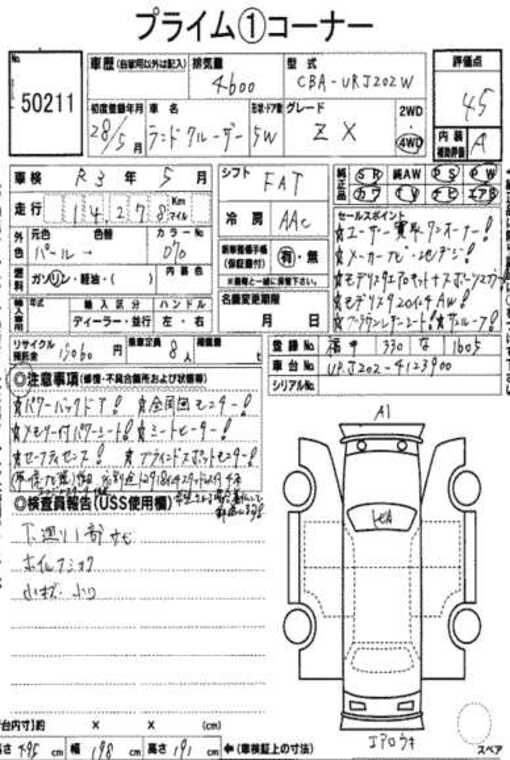 プライム①コーナー
No.
50211
車歴 (自家用以外は記入)
排気量
4600
型式
CBA-URJ202W
評価点
4.5
初度登録年月
28年5月
車名
ランドクルーザー
形状・ドア数
5W
グレード
ZX
2WD
4WD
内装
補助評価
A
車検 R3年5月
シフト
FAT
純正品
SR 純AW PS PW
カワ TV ナビ エアB
走行 14278 Km マイル
冷房
AAC
セールスポイント
☆ユーザー買取ワンオーナー!
☆メーカーナビ・地デジ!
☆モデリスタエアロキット+スポーツマフラー!
☆モデリスタ20インチAW!
☆ブラウンレザーシート!☆サンルーフ!
外色
元色 色替
パール→
カラーNo
070
新車整備手帳
(保証書付)
有・無
※書類と一緒に保管下さい。
燃料
ガソリン・軽油・( )
内装色
輸入車専用
年式
輸入区分
ディーラー・並行
ハンドル
左・右
名義変更期限
月 日
リサイクル
預託金
15060円
乗車定員
8人
積載量
t
登録No. 福井 330 な 1605
車台No. URJ202-4123900
シリアルNo.
◎注意事項(修復・不具合箇所および状態等)
☆パワーバックドア!☆全周囲モニター!
☆メモリー付パワーシート!☆シートヒーター!
☆セーフティセンス!☆ブラインドスポットモニター!
◎検査員報告(USS使用欄)
下廻り一部サビ
ホイルフミカケ
小キズ・小凹
A1
エアロウキ
スペア
台内寸)約 × × (cm)
長さ 495 cm 幅 198 cm 高さ 191 cm ←(車検証上の寸法)